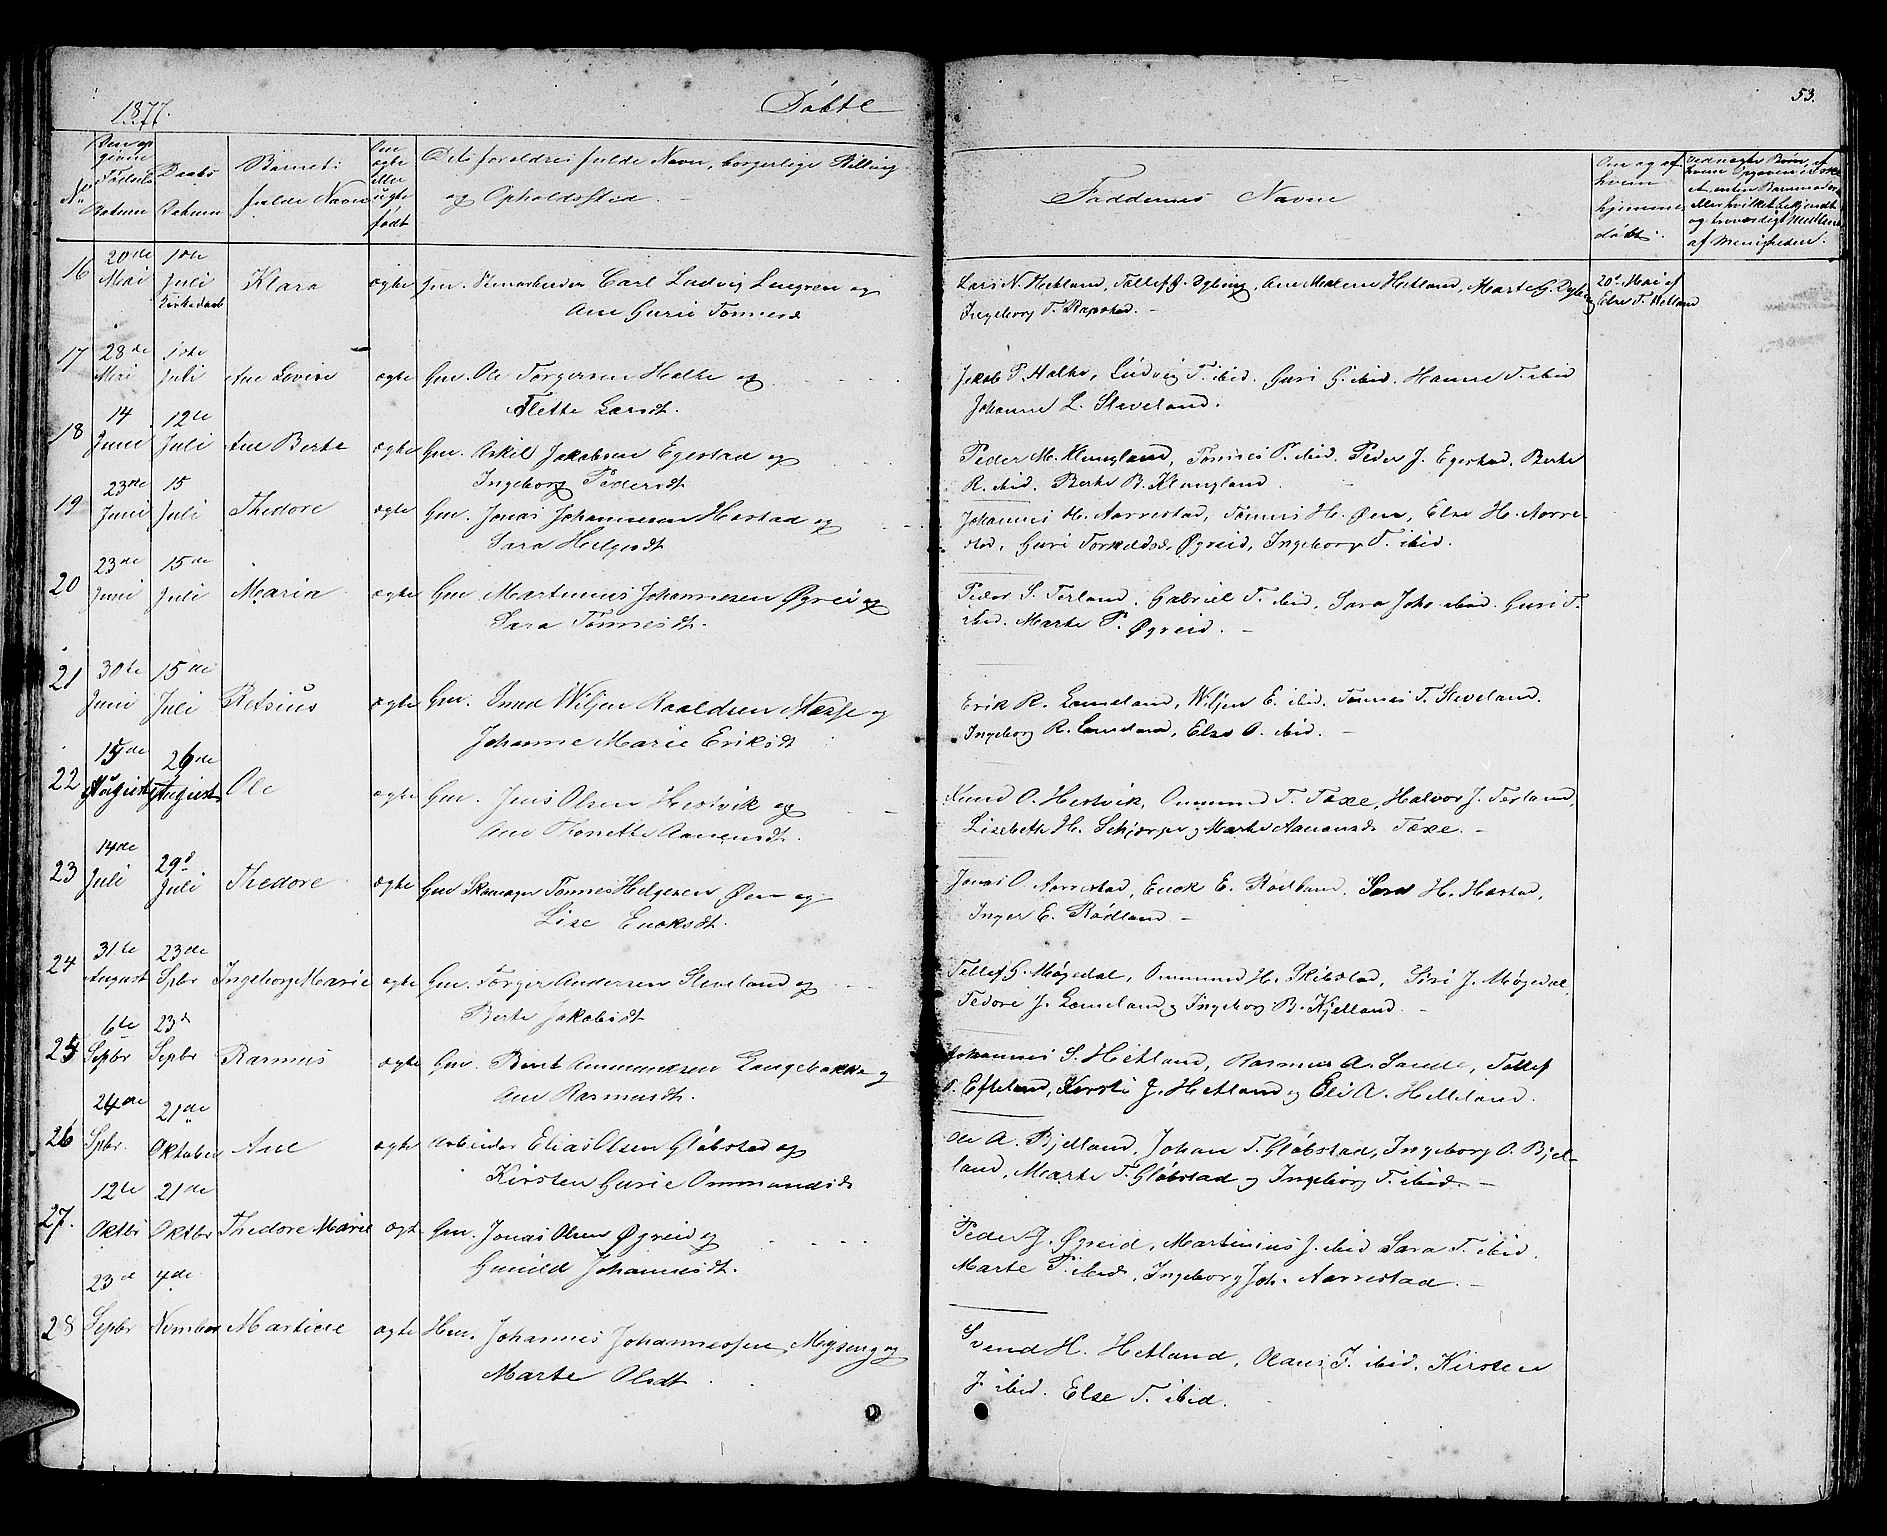 1877.
Døbte
53.
No
Den op
givne
Fødsels
Datum
Daabs
Datum
Barnets
fulde Navn
Om
ægte
eller
uægte
født
Dets forældres fulde Navn, borgerlige Stilling
og Opholdssted.
Faddernes Navne
Om og af
hvem
hjemme
døbt.
af Menigheden.
16 20de Mai 1ste Juli Klara ægte Carl Ludvig og
Ane Gurie Tønnesd
Lars N. Hetland, Tollef G. Dybing, Ane Malene Hetland, Marte G. Dybing
Ingeborg T. Rapstad.
20de Mai af
Else T. Hetland
17 28de Mai 1ste Juli Ane Lovise ægte Gm. Ole Torgersen Halke og
Larsdt.
Jakob T. Halke, Ludvig T. ibid. Guri G. ibid. Hanne T. ibid
Johanne L. Sleveland.
18 14 Juni 12te Juli Ane Berte ægte Gm. Askil Jakobsen Egestad og
Ingeborg Pedersdt
Peder M. Klungland, Tønnes P. ibid. Peder J. Egestad, Berte
R. ibid. Berte B. Klungland.
19 23de Juni 15 Juli Thedore ægte Gm. Jonas Johannesen Hæstad og
Sara Helgesdt
Johannes H. Aarrestad, Tønnes H. Øen, Else H. Aarre-
stad, Guri Torkeldsd, Øgreid, Ingeborg T. ibid.
20 23de Juni 15de Juli Maria ægte Gm. Martinius Johannesen Øgreid og
Sara Tønnesdt.
Peder S. Terland, Gabriel T. ibid, Sara Joh. ibid. Guri T.
ibid. Marte P. Øgreid.
21 30te Juni 15de Juli Retsius ægte Gm. Wiljen Roaldsen og
Johanne Marie Eriksdt
Erik R. Lomeland, Wiljen E. ibid. Tønnes T. Sleveland.
Ingeborg R. Lomeland, Else O. ibid.
22 15de August 26de August Ole ægte Gm. Jens Olsen Hestvik og
Ane Tonette Aanensdt.
Knud O. Hestvik, Ommund T. Taxe, Halvor J. Terland,
Lisebeth H. Schjærpe og Marte Aanensd Taxe.
23 14de Juli 29d Juli Thedore ægte Gm Skomager Tønnes Helgesen Øen og
Lise Enoksdt.
Jonas O. Aarrestad, Enok E. Rødland, Sara H. Hæstad,
Inger E. Rødland
24 31te August 23de Spbr Ingeborg Marie ægte Gm. Torger Andersen Sleveland og
Berte Jakobsdt
Tollef G. Møgedal, Ommund H. Skibstad, Siri J. Møgedal,
Tedore J. Lomeland og Ingeborg B. Kjelland.
25 6te Sepbr 23d Sepbr Rasmus ægte Gm. Berent Ammundsen Langebakke og
Ane Rasmusdt.
Johannes S. Hetland, Rasmus A. Sande, Tollef
O. Efteland, Kirsti J. Hetland og Eli A. Helleland.
26 24de Spbr. 21de Oktober Ane ægte Arbeider Elias Olsen Gløbstad og
Kirsten Gurie Ommundsd
Ole A. Bjelland, Johan T. Gløbstad, Ingeborg O. Bjel-
land, Marte T. Gløbstad og Ingeborg T. ibid.
27. 12te Oktbr 21de Oktbr Thedore Marie ægte Gm. Jonas Olsen Øgreid og
Gunild Johannesdt.
Peder J. Øgreid, Martinius J. ibid Sara T. ibid.
Marte T. ibid, Ingeborg Joh. Aarrestad.
28 23d Sepbr 4de Novmber Martine ægte Johannes Johannessen Mysing og
Marte Olsdt
Svend H. Hetland, Olaus J. ibid, Kirsten
J. ibid. Else T. ibid.